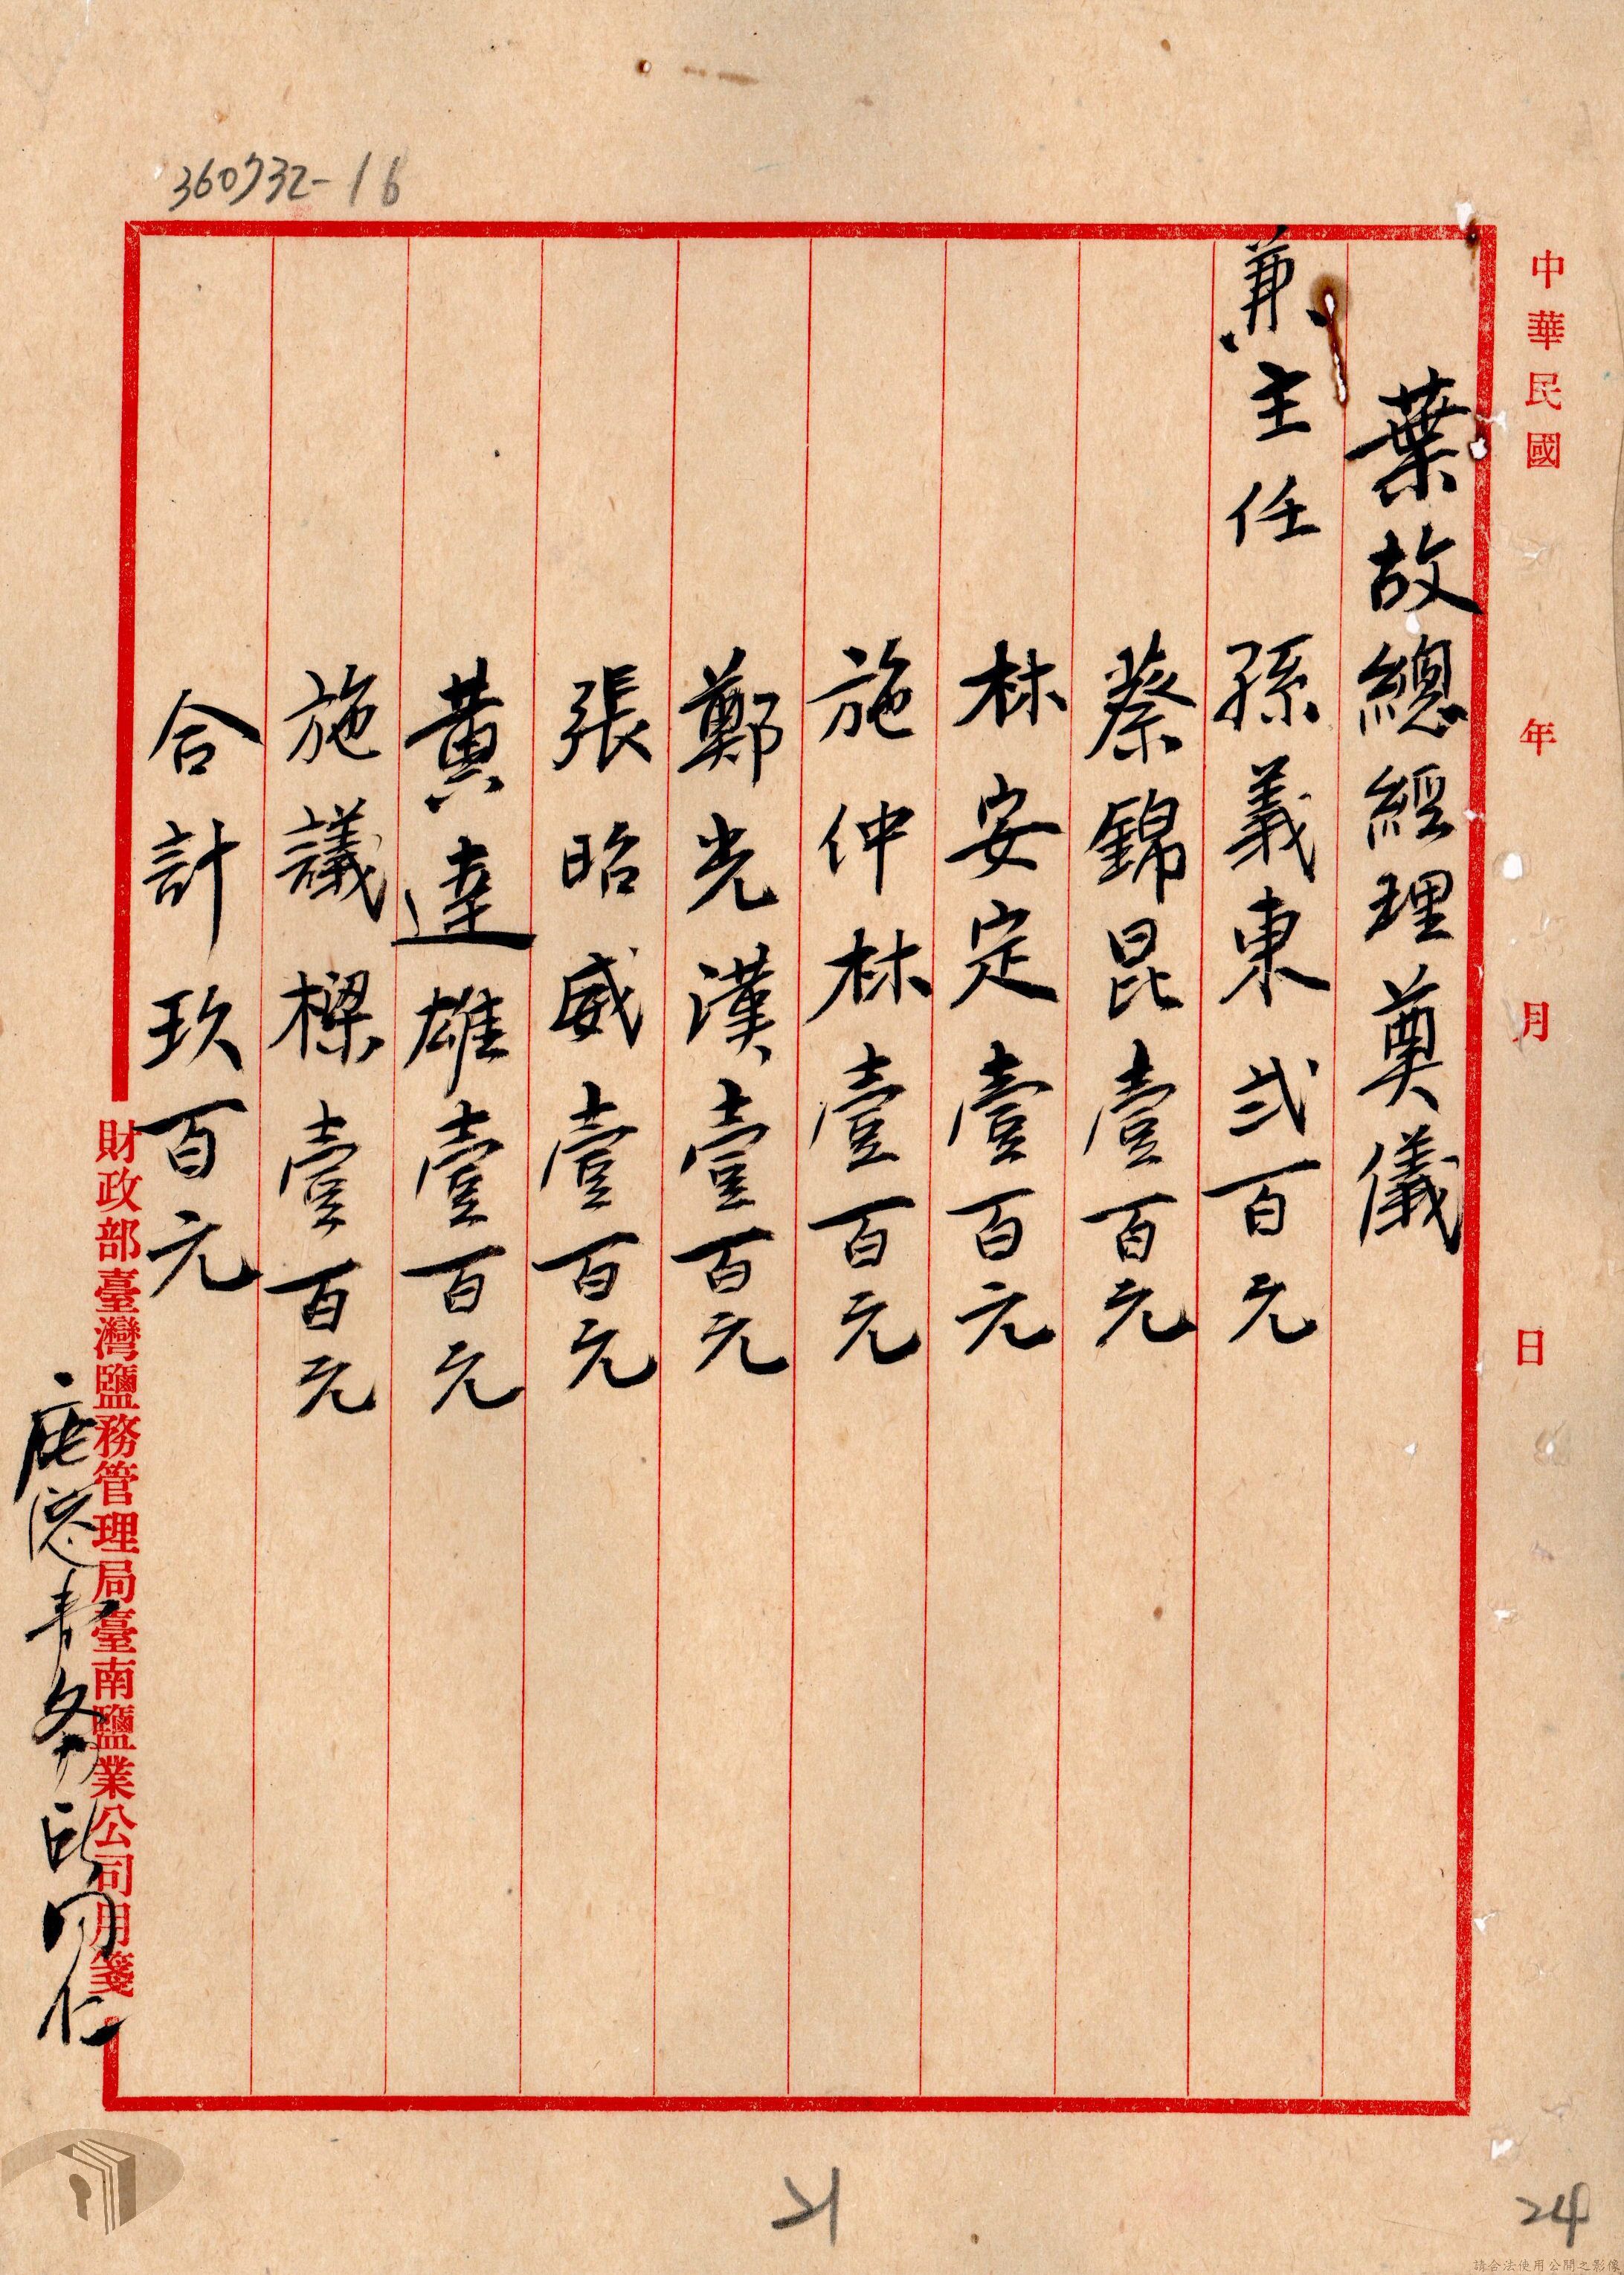 360732-16
中華民國 年 月 日
葉故總經理奠儀
兼主任 孫義東 弍百元
蔡錦昆 壹百元
林安定 壹百元
施仲林 壹百元
鄭光漢 壹百元
張昭威 壹百元
黃達雄 壹百元
施議樑 壹百元
合計玖百元
財政部臺灣鹽務管理局臺南鹽業公司用箋
鹿港
務所同仁
21
24
請合法使用公開之影像